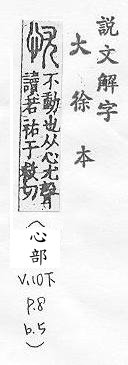 說文解字
大徐本
忧
不動也从心尤聲
讀若祐于救切
（心部
V.10下
P.8
b.5）